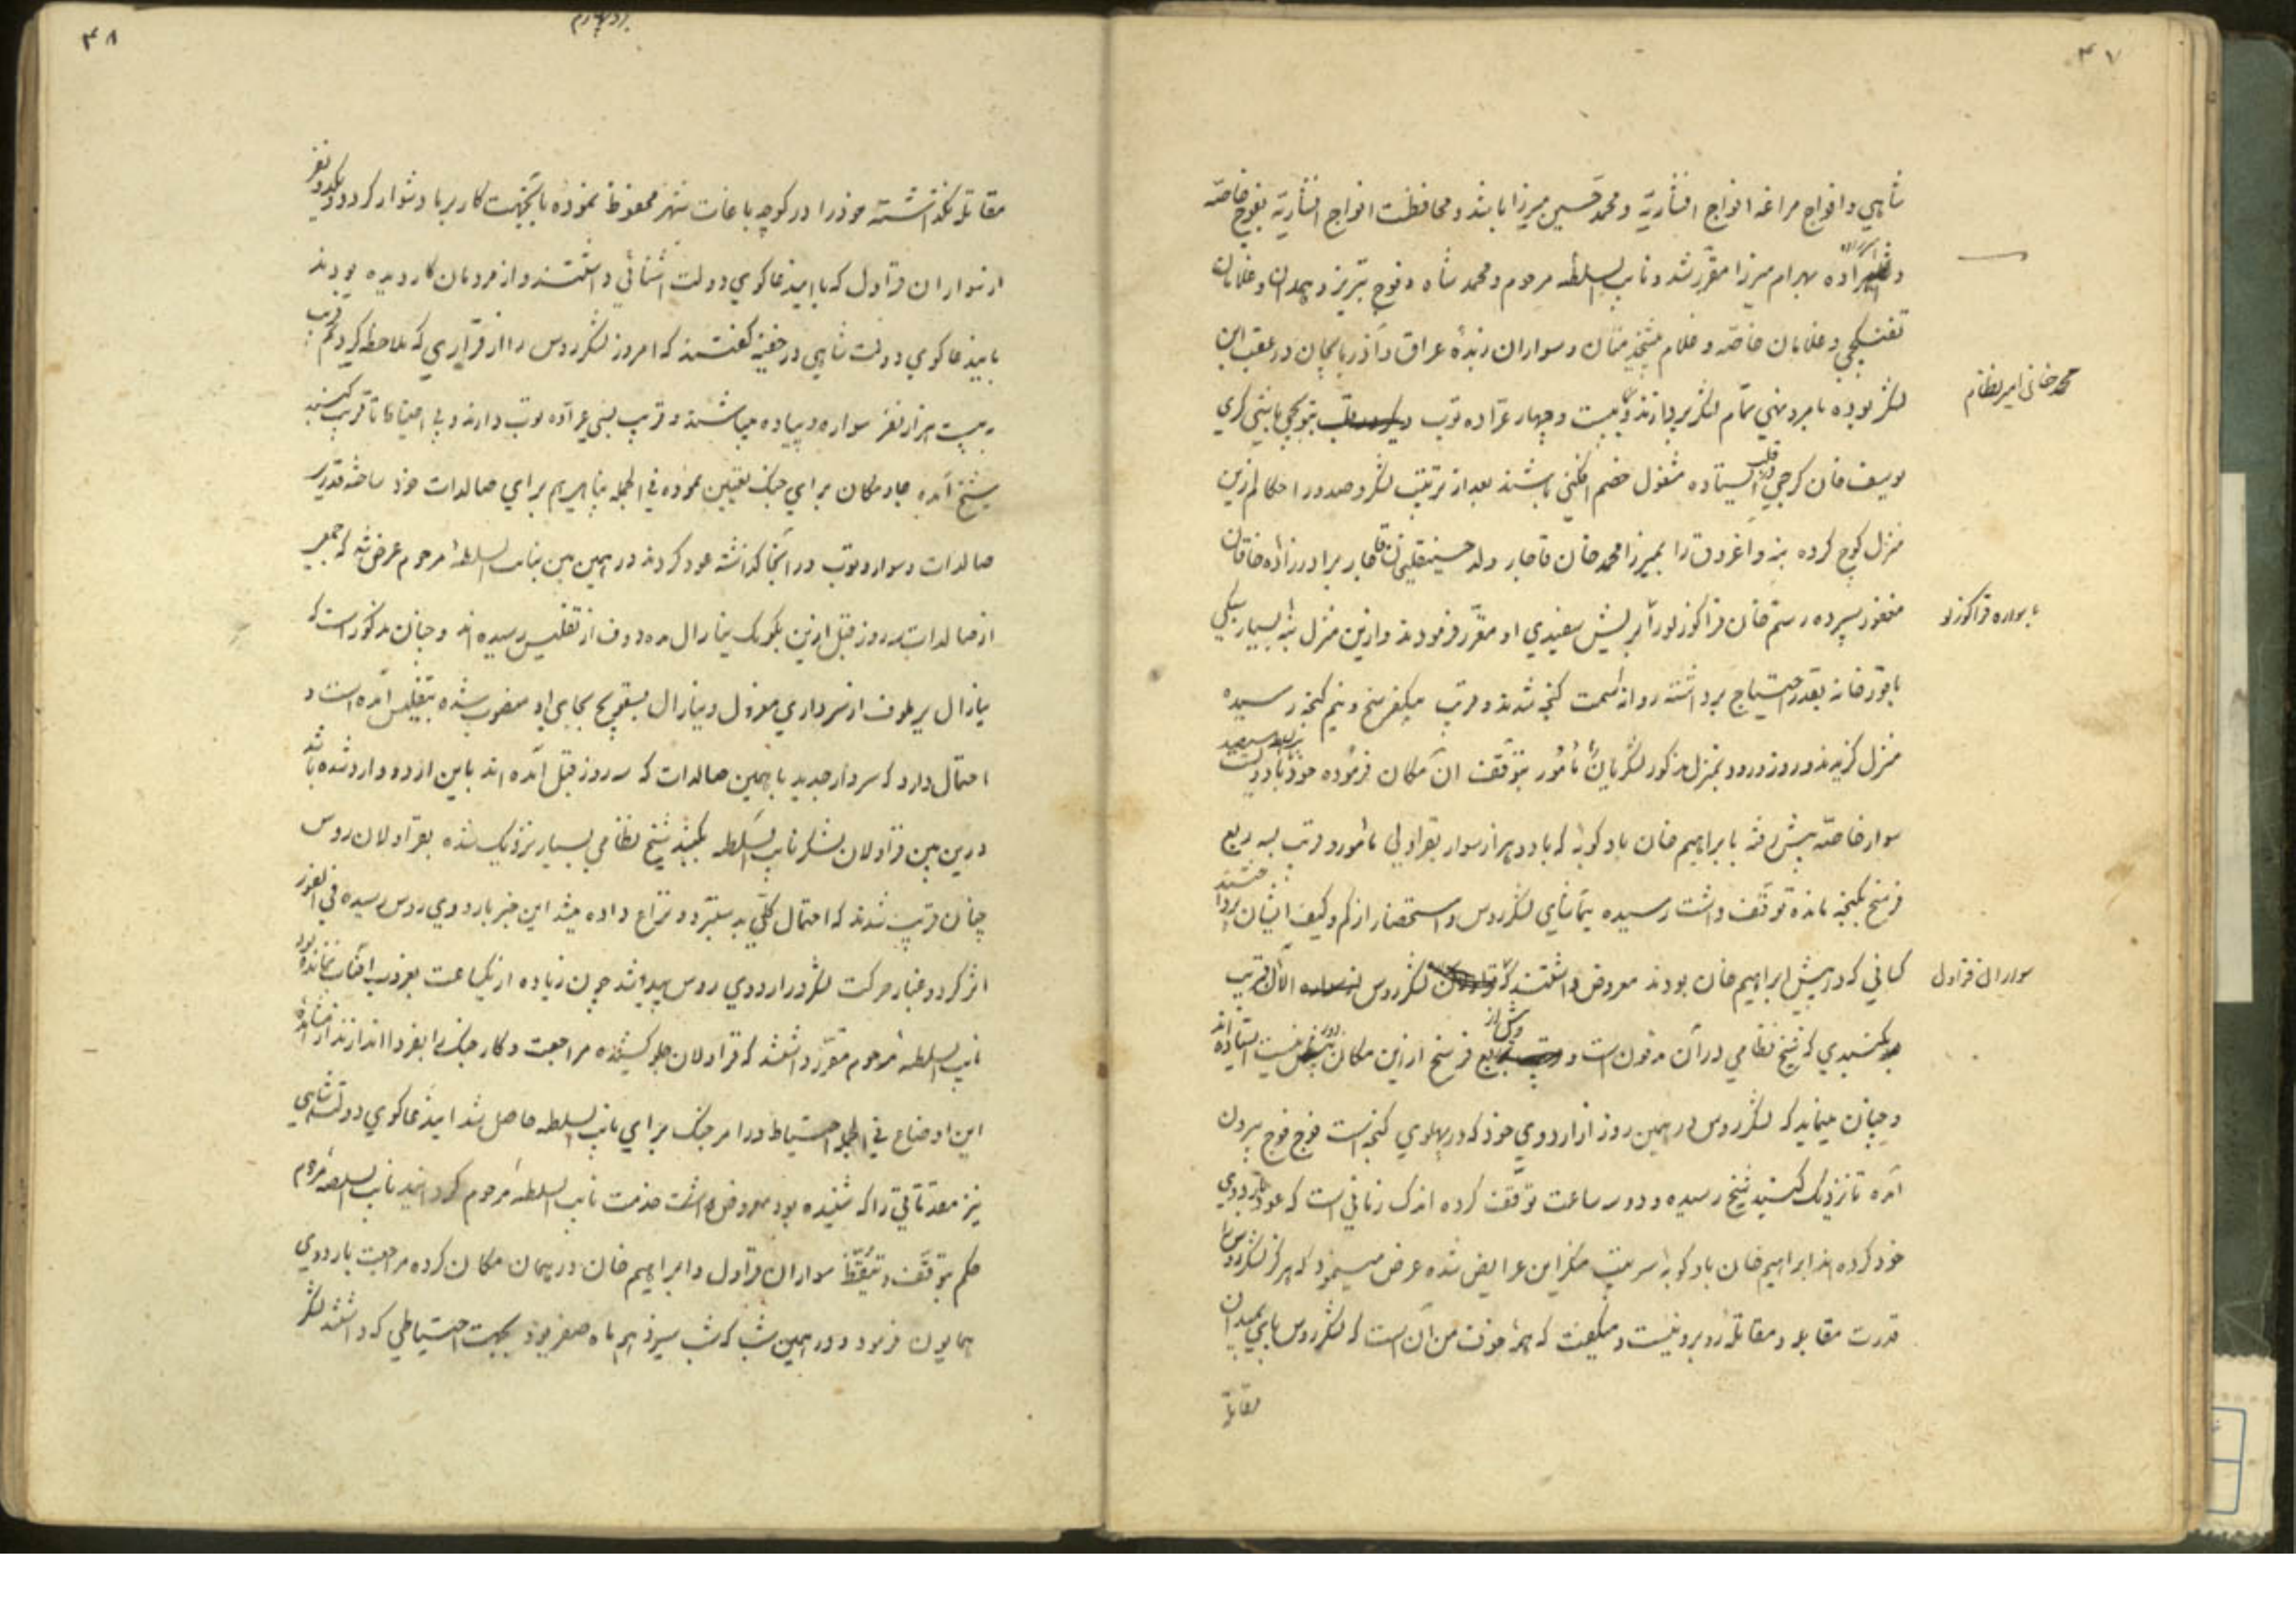 ۴۷
شاهي و افواج مراغه افواج افشاریّه و محمد حسین میرزا باشد و محافظت افواج افشاریّه بفوج خاصّه
و شاهزاده بهرام میرزا مقرّر شد و نایب السلطنه مرحوم و محمد شاه و فوج تبریز و همدان و غلامان
تفنگچي و غلامان خاصّه و غلام پیشخدمتان و سواران زبدهٔ عراق و آذربایجان در عقب این
محمد خان امیر نظام
لشکر بوده بامر و نهي تمام لشکر پردازند و بیست و چهار عرّاده توپ بتوپچي باشي کري
یوسف خان کرجي در قلب ایستاده مشغول خصم افکني باشند بعد از ترتیب لشکر و صدور احکام ازین
منزل کوچ کرده بنه و اغروق را بمیرزا محمد خان قاجار ولد حسینقلیخان قاجار برادرزاده خاقان
با سواره قراکوزلو
مغفور سپرده رستم خان قراکوزلو را بریش سفیدي او مقرّر فرمودند و ازین منزل بنه بسیار سبکي
با قورخانه بقدر احتیاج برداشته روانه سمت کنجه شدند و قریب بیکفرسخ و نیم کنجه رسیده
منزل کزیدند و روز ورود بمنزل مذکور لشکریان را مأمور بتوقّف آن مکان فرموده خود با دویست
سوار خاصّه پیش رفته با براهیم خان بادکوبه که با دو هزار سوار بقراولي مأمور و قریب بسه ربع
فرسخ بکنجه مانده توقّف داشت رسیده بتماشاي لشکر روس و استحضار از کم و کیف ایشان پرداختند
سواران قراول
کساني که در پیش ابراهیم خان بودند معروض داشتند که لشکر روس الآن قریب
بکنبدي که شیخ نظامي در آن مدفون است و بیش از ربع فرسخ ازین مکان دور نیست ایستاده اند
و چنان مینماید که لشکر روس در همین روز از اردوي خود که در پهلوي کنجه است فوج فوج بیرون
آمده تا نزدیک کنبد شیخ رسیده و دو سه ساعت توقّف کرده اندک زماني است که عود باردوي
خود کرده اند ابراهیم خان بادکوبه سرتیپ منکر این عرایض شده عرض مینمود که هرکز لشکر روس را
قدرت مقابله و مقاتله رو برو نیست و میکفت که همه خوف من آن است که لشکر روس پاي بمیدان
مقاتله
۴۸
مقاتله نکذاشته خود را در کوچه باغات شهر محفوظ نموده باینجهت کار بر ما دشوار کردد و یکدو نفر
از سواران قراول که با این دعاکوي دولت آشنائي داشتند و از مردمان کار دیده بودند
باین دعاکوي دولت شاهي در خفیه کفتند که امروز لشکر روس را از قراري که ملاحظه کردیم قریب
به بیست هزار نفر سواره و پیاده میباشند و قریب بسي عرّاده توپ دارند و بي احتیاط تا قریب کنبد
شیخ آمده جا و مکان براي جنک تعیین نموده في الجمله پناهي هم براي صالدات خود ساخته قدري
صالدات و سوار و توپ در آنجا کذاشته عود کردند در همین بین بنایب السلطنه مرحوم عرض شد که جمعي
از صالدات سه روز قبل ازین بکومک ینارال مددوف از تفلیس رسیده اند و چنان مذکور است که
ینارال یرملوف از سرداري معزول و ینارال بسقویچ بجاي او منصوب شده بتفلیس آمده است و
احتمال دارد که سردار جدید با همین صالدات که سه روز قبل آمده اند باین اردو وارد شده باشد
درین بین قراولان لشکر نایب السلطنه بکنبد شیخ نظامي بسیار نزدیک شده بقراولان روس
چنان قریب شدند که احتمال کلّي بستیز و نزاع داده میشد این خبر باردوي روس رسیده في الفور
اثر کرد و غبار حرکت لشکر در اردوي روس پیدا شد چون زیاده از یکساعت بغروب آفتاب نمانده بود
نایب السلطنه مرحوم مقرّر داشتند که قراولان جلو کشیده مراجعت و کار جنک را بفردا اندازند از مشاهده
این اوضاع في الجمله احتیاط در امر جنک براي نایب السلطنه حاصل شد این دعاکوي دولت شاهي
نیز مقدّماتي را که شنیده بود معروض داشت خدمت نایب السلطنه مرحوم کردانید نایب السلطنه مرحوم
حکم بتوقّف و تیقّظ سواران قراول و ابراهیم خان در همان مکان کرده مراجعت باردوي
همایون فرمود و در همین شب که شب سیزدهم ماه صفر بود بجهت احتیاطي که داشتند لشکر